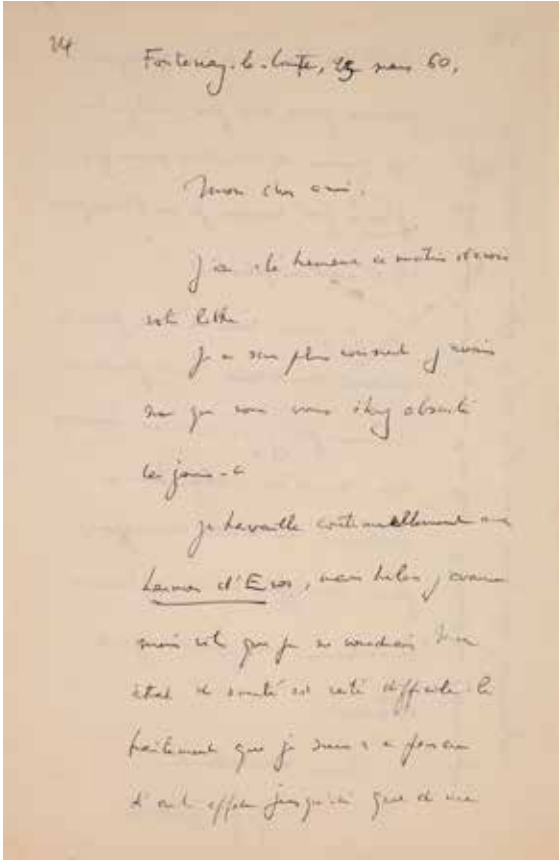 24
Fontenay-le-Comte, 25 mars 60.
Mon cher ami,
J'ai été heureux ce matin d'avoir
votre lettre.
Je ne sais plus comment j'avais
su que vous vous étiez absenté
ces jours-là
Je travaille continuellement aux
Larmes d'Eros, mais hélas j'avance
moins vite que je ne voudrais. Mon
état de santé est resté difficile le
traitement que je suis
n'ont d'effet jusqu'ici que de me